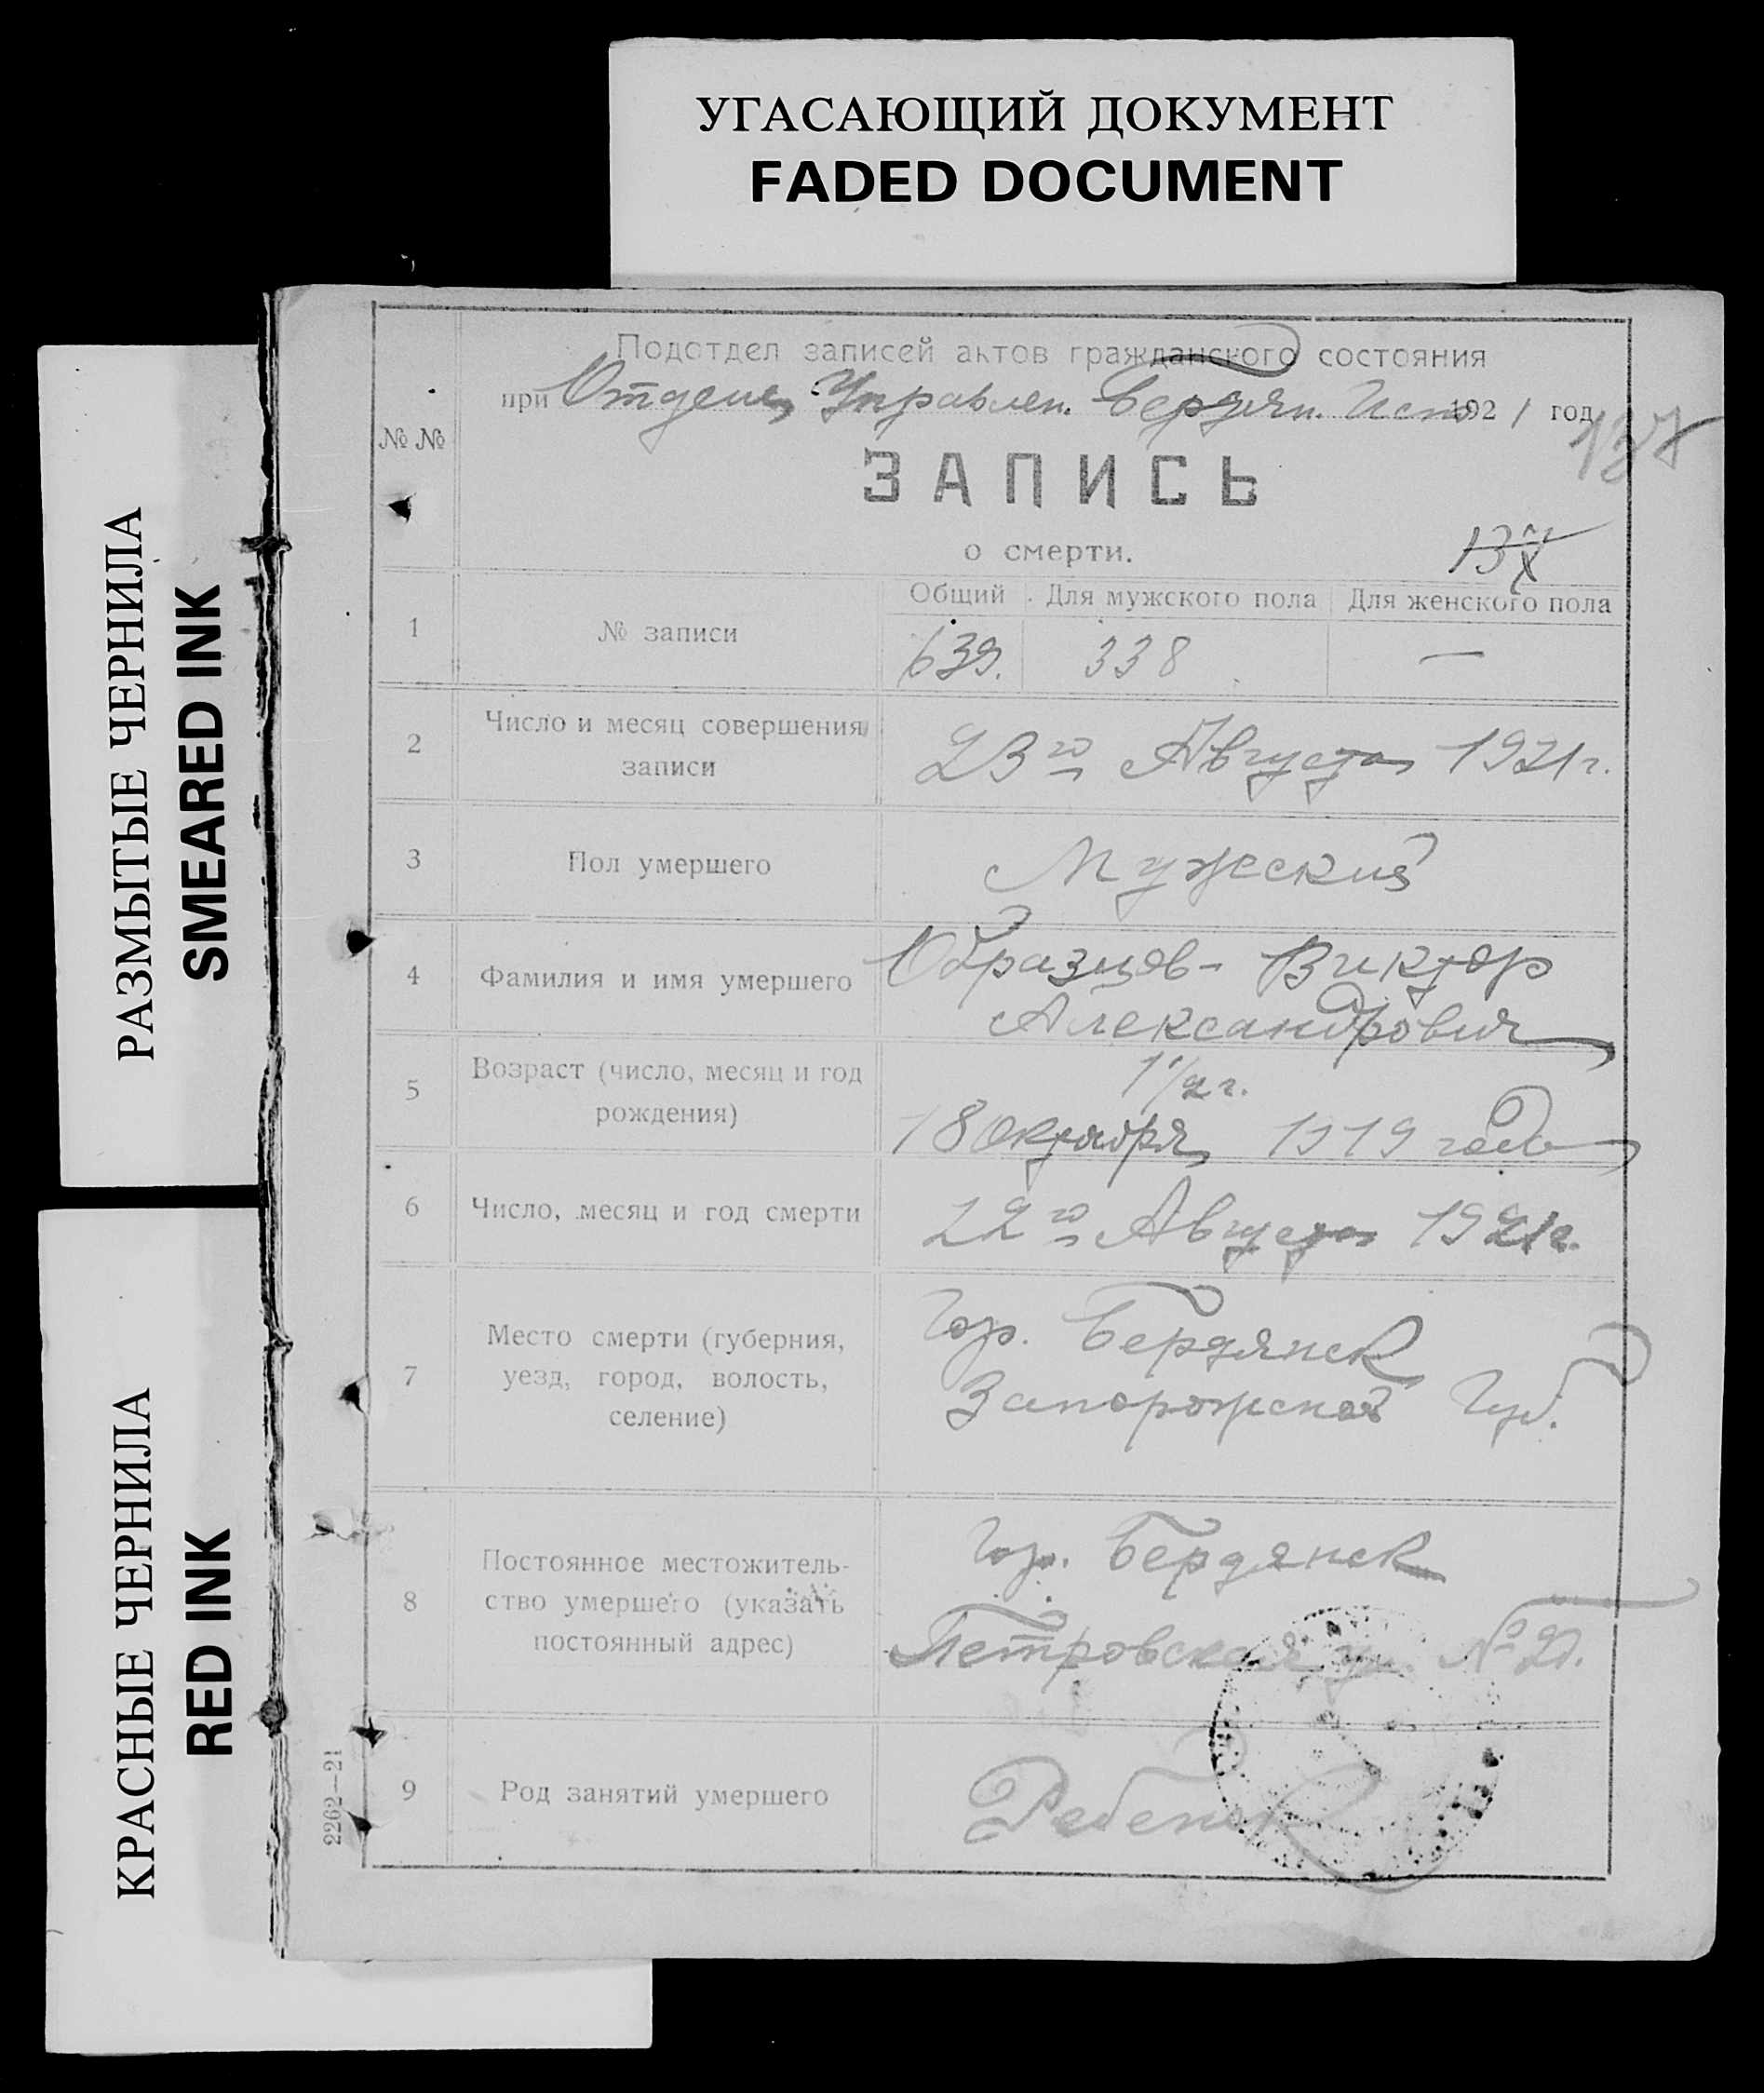 УГАСАЮЩИЙ ДОКУМЕНТ
FADED DOCUMENT
РАЗМЫТЫЕ ЧЕРНИЛА
SMEARED INK
КРАСНЫЕ ЧЕРНИЛА
RED INK
Подотдел записей актов гражданского состояния
при Отделе Управлен. Бердян. Исп. 1921 год
137
№ №
ЗАПИСЬ
о смерти.
Общий Для мужского пола Для женского пола
1 № записи 639. 338 —
2 Число и месяц совершения записи
23го Августа 1921 г.
3 Пол умершего Мужеский
4 Фамилия и имя умершего Образцов- Виктор
Александрович
5 Возраст (число, месяц и год рождения)
1 1/2 г.
18 октября 1919 года
6 Число, месяц и год смерти 22го Августа 1921 г.
7 Место смерти (губерния,
уезд, город, волость,
селение)
Гор. Бердянск
Запорожской Губ.
8 Постоянное местожитель-
ство умершего (указать
постоянный адрес)
Гор. Бердянск
Петровская ул. №
9 Род занятий умершего Ребенок
2262—21